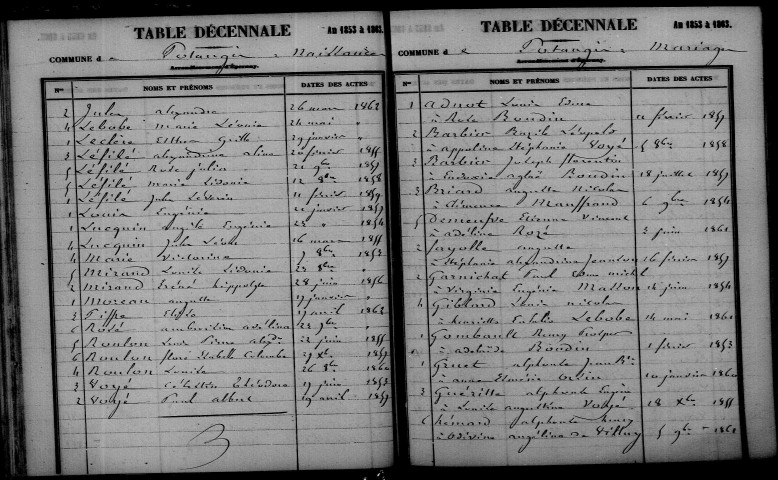 TABLE DÉCENNALE An 1853 à 1863.
COMMUNE d e Potangis Naissance
Nos NOMS ET PRÉNOMS DATES DES ACTES
2 Jules alexandre 26 mars 1862
4 Lebobe Marie Léonie 24 mai "
1 Leclère Esther 29 janvier "
3 Léfilé alexandrine aline 20 février 1855
5 Léfilé Rose Julia 21 9bre 1857
5 Léfilé Marie Lidonie 12 8bre 1858
1 Léfilé Jules Séverin 11 février 1859
1 Louis Eugénie 21 janvier 1857
1 Lucquin angèle Eugénie 23 " 1854
4 Lucquin Jules Léon 16 mars 1855
4 Marie Victorine 7 8bre 1853
5 Mirand Louise Lidonie 23 8bre "
2 Mirand hippolyte 28 juin 1856
1 Moreau auguste 17 janvier "
3 Elisée 17 avril 1862
6 Rosé adeline 22 9bre "
5 Roulon Louis Pierre 22 juin 1855
6 Roulon Isabelle Colombe 27 Xbre 1857
4 Roulon Louise 26 8bre 1860
3 Voyé Célestin Théodore 17 juin 1853
2 Voyé Paul albert 19 avril 1857
TABLE DÉCENNALE An 1853 à 1863.
COMMUNE d e Potangis Mariage
Nos NOMS ET PRÉNOMS DATES DES ACTES
1 adnot Louis Edme
à Rose Boudin février 1857
2 Barbier Bazile Léopold
à appoline Stéphanie Voyé 5 8bre 1858
3 Barbier Joseph florentin
à aglaé Boudin 18 juillet 1857
3 Briard auguste Nicolas
à Mauffrand 6 9bre 1854
5 Demeufve Etienne Vincent
à adéline Rozé 3 juin 1861
2 fayolle auguste
à Stéphanie alexandrine 16 février 1857
2 Garnichat Paul Edme michel
à Virginie Eugénie Masson 14 juin 1854
4 Louis nicolas
à henriette Lebobe 14 mai 1861
1 Gombault Remy
à adelaïde Boudin 1 février 1853
1 Gruet alphonse Jean Bte
à anne 10 janvier 1860
3 Guéritte alphonse Eugène
à Louise augustine Voyé 18 Xbre 1855
6 hémard alphonse
à angélina de Villuy 5 9bre 1861